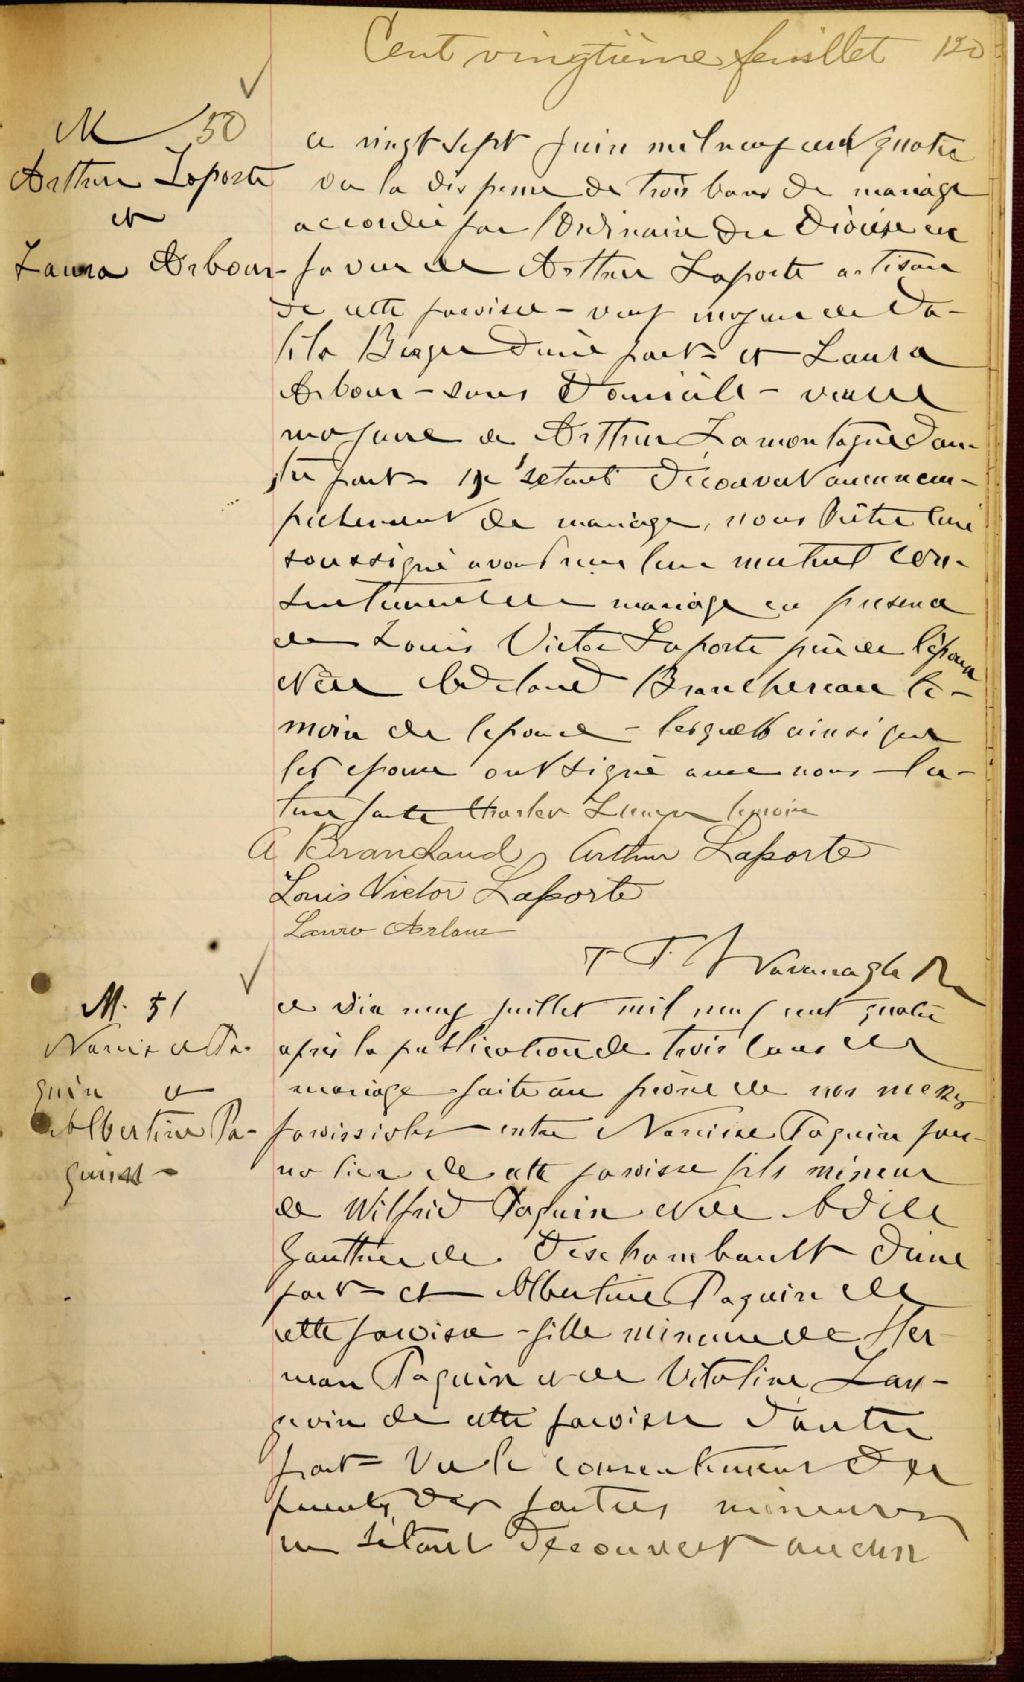 Cent vingtième feuillet 120
M 50
Arthur Laporte
et
Laura Arbour
Ce vingt sept juin mil neuf cent quatre
vu la dispense de trois bans de mariage
accordée par l'Ordinaire du Diocèse en
faveur de Arthur Laporte artisan
de cette paroisse - veuf majeur de Da-
lila d'une part et Laura
Arbour - sans Domicile - veuve
majeure de Arthur Lamontagne d'au-
tre part ne s'etant découvert aucun em-
pêchement de mariage, nous Prêtre Curé
soussigné avons reçu leur mutuel con-
sentement de mariage en présence
de Louis Victor Laporte père de l'époux
et de Branchereau té-
moin de l'épouse - lesquels ainsi que
les époux ont signé avec nous - lec-
ture faite Charles temoin
A Branchaud Arthur Laporte
Louis Victor Laporte
Laura Arbour
Kavanagh
M. 51
Narcisse Pa-
quin et
Albertine Pa-
quin -
Ce dix neuf juillet mil neuf cent quatre
après la publication de trois bans de
mariage faite au prône de nos messes
paroissiales entre Narcisse Paquin jour-
nalier de cette paroisse fils mineur
de Wilfrid Paquin et de Odile
Gauthier de Deschambault d'une
part et Albertine Paquin de
cette paroisse - fille mineure de Her-
man Paquin et de Vitaline Lan-
gevin de cette paroisse d'autre
part Vu le consentement des
parents des parties mineures
ne s'étant découvert aucun